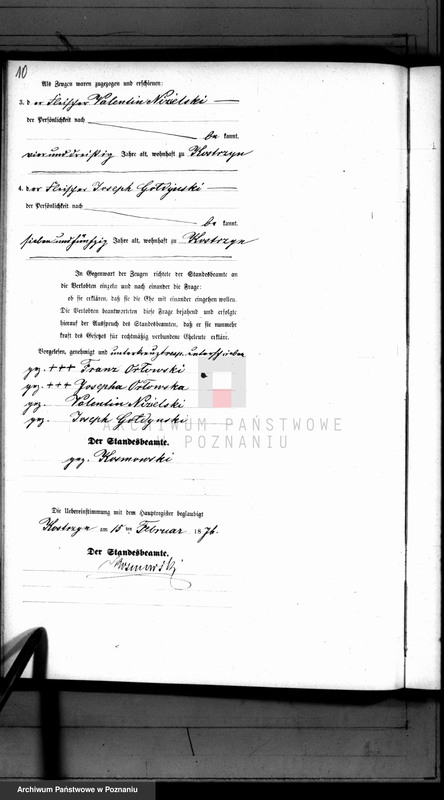 10
Als Zeugen waren zugezogen und erschienen:
3. d er Fleischer Valentin Nizielski —
der Persönlichkeit nach
be kannt,
vierunddreißig Jahre alt, wohnhaft zu Kostrzyn
4. d er Fleischer Joseph Gołdyński —
der Persönlichkeit nach
be kannt,
siebenundfünfzig Jahre alt, wohnhaft zu Kostrzyn
In Gegenwart der Zeugen richtete der Standesbeamte an
die Verlobten einzeln und nach einander die Frage:
ob sie erklären, daß sie die Ehe mit einander eingehen wollen.
Die Verlobten beantworteten diese Frage bejahend und erfolgte
hierauf der Ausspruch des Standesbeamten, daß er sie nunmehr
kraft des Gesetzes für rechtmäßig verbundene Eheleute erkläre.
Vorgelesen, genehmigt und unterkreuzt resp. unterschrieben
gez. +++ Franz Orłowski
gez. +++ Josepha Orłowska
gez. Valentin Nizielski
gez. Joseph Gołdynski
ARCHIWUM PAŃSTWOWE
W POZNANIU
Der Standesbeamte.
gez. Kosmowski
Die Uebereinstimmung mit dem Hauptregister beglaubigt
Kostrzyn am 15 ten Februar 1876.
Der Standesbeamte.
Kosmowski
Archiwum Państwowe w Poznaniu